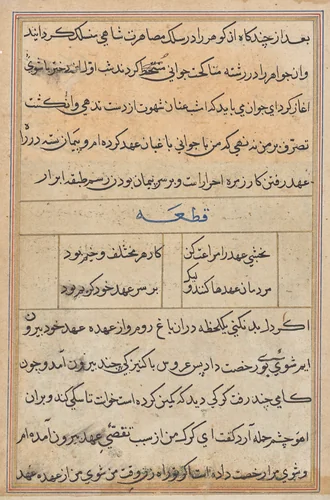 بعد از چندگاه آن گوهر را در سلک مصاهرت شاهی منسلک گردانیدند
وآن جواهر را در رشته مناکحت جوانی منخرط کردند شب اول آن دختر با شوی
آغاز کرد ای جوان می باید که امشب عنان شهوت از دست ندهی وانگشت
تصرف بر من ننهی که من با جوانی باغبان عهد کرده ام و پیمان بسته در راه
عهد رفتن کار زمره احرار است و بر سر پیمان بودن رسم طبقه ابرار
قطعه
نخشبی عهد را مراعت کن
کار هر مختلف و خیم بود
مردمان عهدها کنند ولیک
بر سر عهد خود کریم بود
اگر دل بد نکنی یک لحظه در آن باغ روم و از عهده عهد خود بیرون
آیم شوی وی را رخصت داد پس عروس با کنیزکی چند بیرون آمد و چون
گامی چند رفت گرگی دید که کمین کرده است خواست تا سگی کند و بر آن
آهو چشم حمله آرد گفت ای گرگ من از سبب تقصی عهد بیرون آمده ام
و شوی مرا رخصت داده است که بر و راه زر وقت من شوی من از عهده عهد